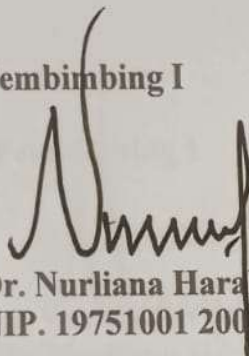 embimbing I
Dr. Nurliana Hara
NIP. 19751001 200